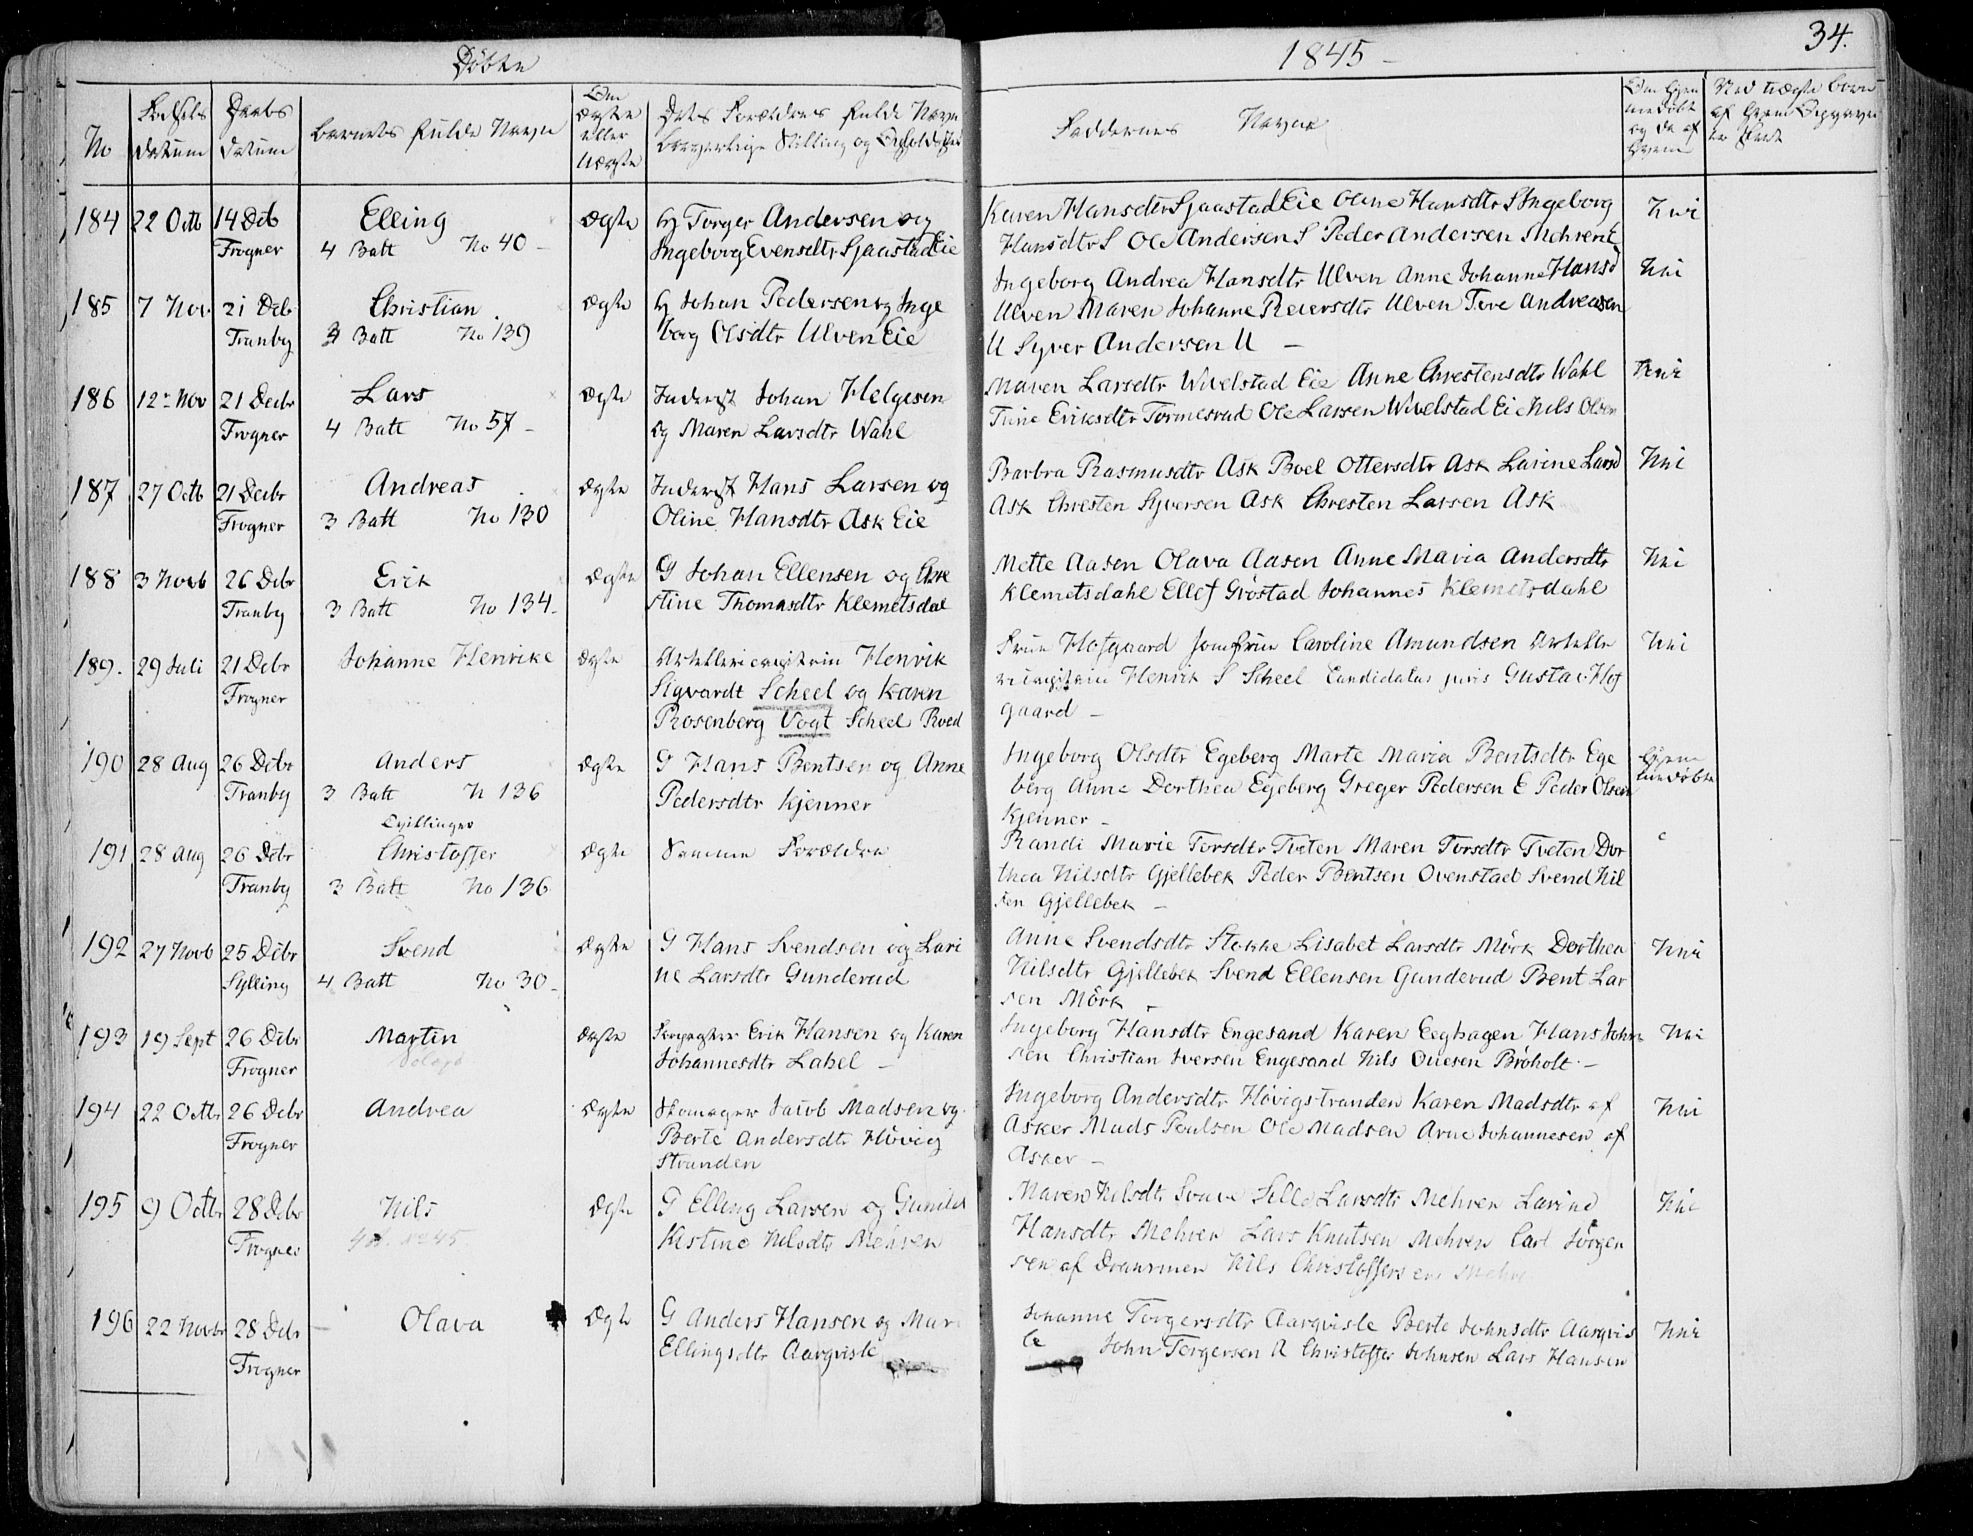 Döbte
1845 -
34.
No
Fødsels
datum
Daabs
datum
Barnets fulde Navn
Om
ægte
eller
uægte
Dets Forældres fulde Navn
borgerlige Stilling og Opholdsted
Faddernes Navne
184 22 Octb 14 Deb Elling ægte Torger Andersen og Karen Hansdtr Sjaastad Eie Hansdtr S Ingeborg Nei
Frogner 4 Batt No 40 - Ingeborg Evensdtr Sjaastad Eie Hansdtr S Ole Andersen S Peder Andersen Mehren E
185 7 Nov 21 Deb Christian ægte Johan Pedersen og Inge Ingeborg Andrea Hansdtr Ulven Anne Johanne Hansd Nei
Tranby 3 Batt No 139 borg Olsdtr Ulven Eie Ulven Maren Johanne Reiersdtr Ulven Tore Andreasen
U Syver Andersen U -
186 12 Nov 21 Decbr Lars ægte Inderst Johan Helgesen Maren Larsdtr Wivelstad Eie Anne Chrestensdtr Wahl Nei
Frogner 4 Batt No 57 - og Maren Larsdtr Wahl Eriksdtr Tormesrud Ole Larsen Wivelstad Ei Nils Olsen
187 27 Octb 21 Decbr Andreas ægte Inderst Hans Larsen og Barbra Rasmusdtr Ask Boel Ottersdtr Ask Larine Larsd Nei
Frogner 3 Batt No 130 Oline Hansdtr Ask Eie Ask Chresten Syversen Ask Chresten Larsen Ask
188 3 Novb 26 Debr Erik ægte G Johan Ellensen og Chre Mette Aasen Olava Aasen Anne Maria Andersdtr Nei
Tranby 3 Batt No 134 - stine Thomasdtr Klemetsdal Klemetsdahl Ellef Gröstad Johannes Klemetsdahl
189. 29 Juli 21 Debr Johanne Henrike ægte Henrik Frue Hofgaard Jomfrue Caroline Amundsen Artelle Nei
Frogner Sigvardt Scheel og Karen Henrik S Scheel Candidatus juris Gustav Hof
Rosenberg Vogt Scheel Roed gaard -
190 28 Aug 26 Debr Anders ægte G Hans Bentsen og Anne Ingeborg Olsdtr Egeberg Marte Maria Bentsdtr Ege hjem
Tranby 3 Batt N 136 Pedersdtr Kjenner berg Anne Dorthea Egeberg Greger Pedersen E Peder Olsen medøbte
Tvillinger Kjenner -
191 28 Aug 26 Debr Christoffer ægte Samme Forældre Randi Marie Torsdtr Tveten Maren Torsdtr Tveten Dor
Tranby 3 Batt No 136 thea Nilsdtr Gjellebek Peder Bentsen Ovenstad Svend Nil
sen Gjellebek -
192 27 Novb 25 Debr Svend ægte G Hans Svendsen og Lari Anne Svendsdtr Stokke Lisabet Larsdtr Mörk Dorthea Nei
Sylling 4 Batt No 30 - ne Larsdtr Gunderud Nilsdtr Gjellebek Svend Ellensen Gunderud Bent Lar
sen Mörk -
193 19 Sept 26 Debr Martin ægte Forpagter Erik Hansen og Karen Ingeborg Hansdtr Engesand Karen Eeghagen Hans John Nei
Frogner Johannesdtr Lahel - sen Christian Iversen Engesand Nils Ouesen Bröholt -
194 22 Octb 26 Debr Andrea ægte Skomager Jacob Madsen og Ingeborg Andersdtr Hövigstranden Karen Madsdtr af Nei
Frogner Berte Andersdtr Hövig Asker Mads Poulsen Ole Madsen Arne Johannesen af
Stranden Asker -
195 9 Octbr 28 Debr Nils ægte G Elling Larsen og Gunild Maren Nilsdtr Larsdtr Mehren Larine Nei
Frogner 4 B. No 45. Kistine Nilsdtr Mehren Hansdtr Mehren Lars Knutsen Mehren Carl Jörgen
sen af Drammen Nils Christoffersen Mehr
196 22 Novbr 28 Debr Olava ægte G Anders Hansen og Mar Johanne Torgersdtr Aarqvisle Berte Johnsdtr Aarqvis Nei
Frogner Ellingsdtr Aarqvisle le John Torgersen A Christoffer Johnsen Lars Hansen